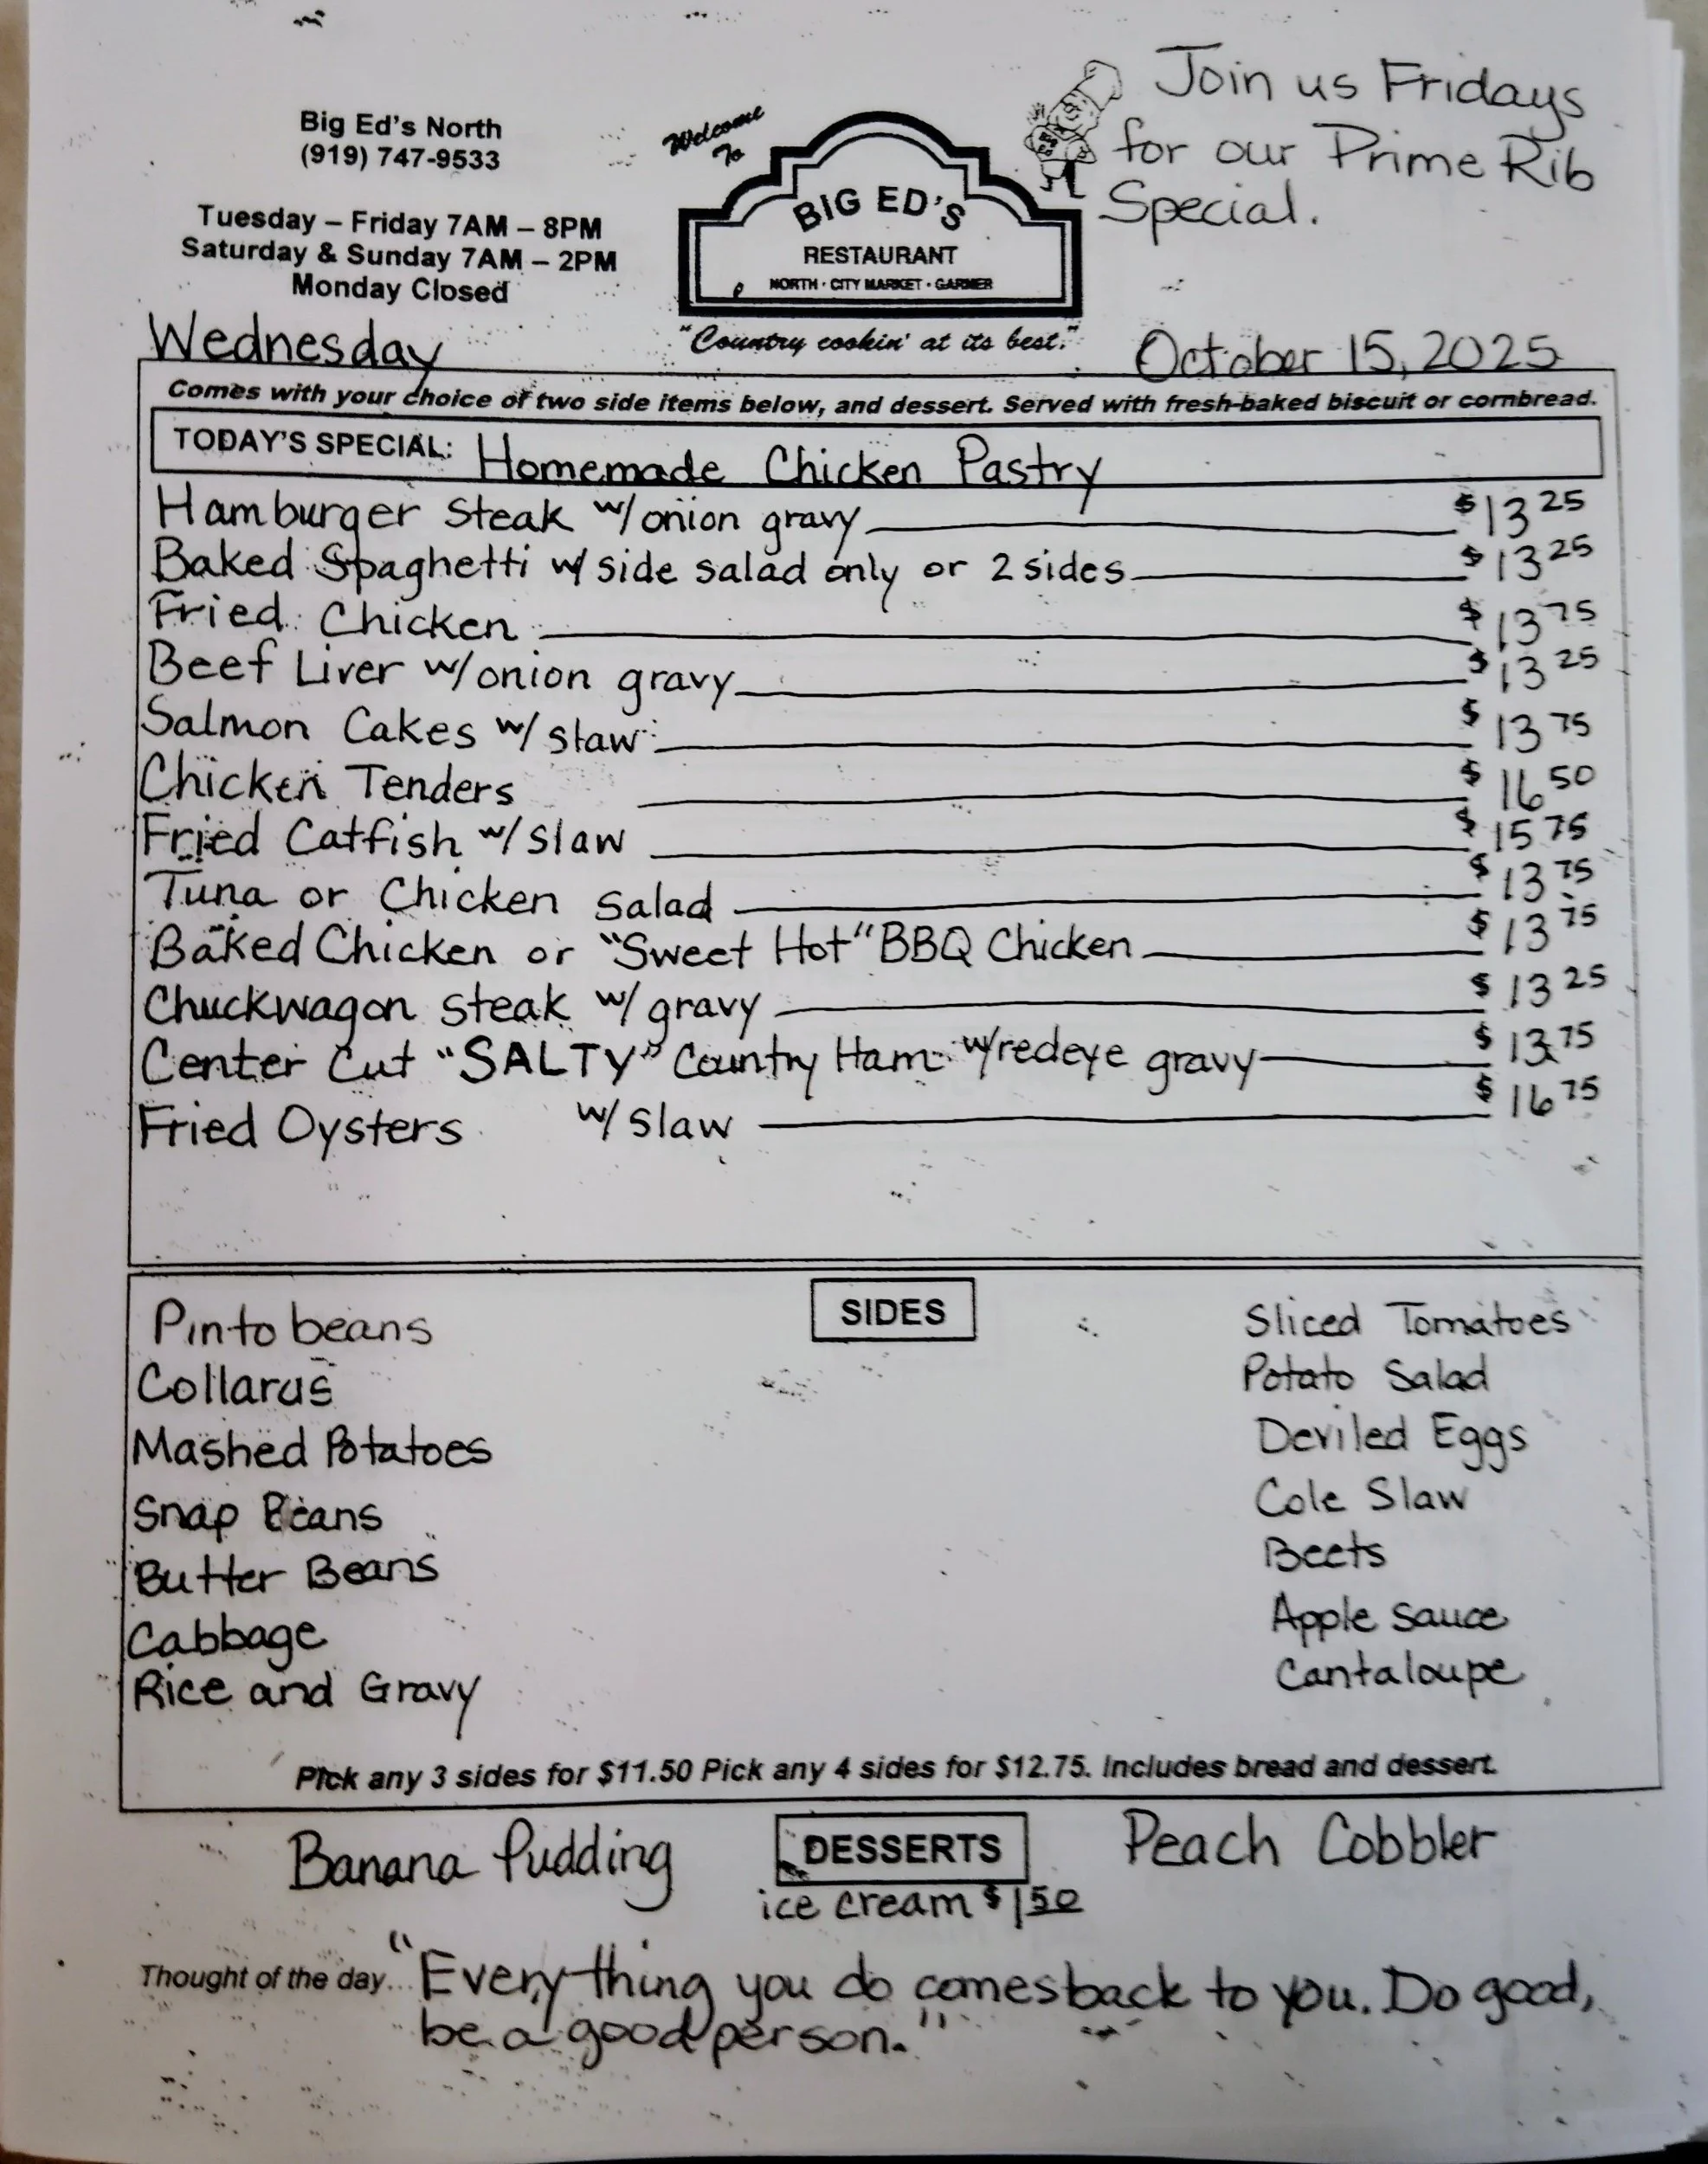 Big Ed's North
(919) 747-9533
Tuesday – Friday 7AM – 8PM
Saturday & Sunday 7AM – 2PM
Monday Closed
Welcome
To
BIG ED'S
RESTAURANT
NORTH · CITY MARKET · GARNER
"Country cookin' at its best."
Join us Fridays
for our Prime Rib
Special.
Wednesday
October 15, 2025
Comes with your choice of two side items below, and dessert. Served with fresh-baked biscuit or cornbread.
TODAY'S SPECIAL: Homemade Chicken Pastry
Hamburger Steak w/ onion gravy $13 25
Baked Spaghetti w/ side salad only or 2 sides $13 25
Fried Chicken $13 75
Beef Liver w/ onion gravy $13 25
Salmon Cakes w/ slaw $13 75
Chicken Tenders $16 50
Fried Catfish w/ slaw $15 75
Tuna or Chicken Salad $13 75
Baked Chicken or "Sweet Hot" BBQ Chicken $13 75
Chuckwagon steak w/ gravy $13 25
Center Cut "SALTY" Country Ham w/ redeye gravy $13 75
Fried Oysters w/ slaw $16 75
SIDES
Pinto beans
Collards
Mashed Potatoes
Snap Beans
Butter Beans
Cabbage
Rice and Gravy
Sliced Tomatoes
Potato Salad
Deviled Eggs
Cole Slaw
Beets
Apple Sauce
Cantaloupe
Pick any 3 sides for $11.50 Pick any 4 sides for $12.75. Includes bread and dessert.
Banana Pudding
DESSERTS
Peach Cobbler
ice cream $1 50
Thought of the day... "Everything you do comes back to you. Do good,
be a good person."